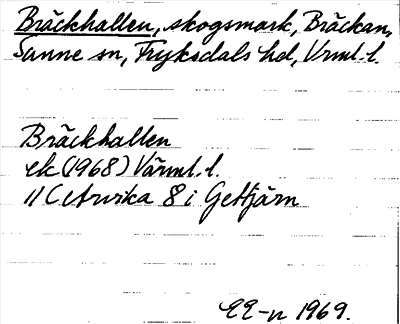 Bräckhallen, skogsmark, Bräckan,
Sunne sn, Fryksdals hd, Vrml. l.
Bräckhallen
ek (1968) Värml. l.
11C Arvika 8 i Gettjärn
1969.